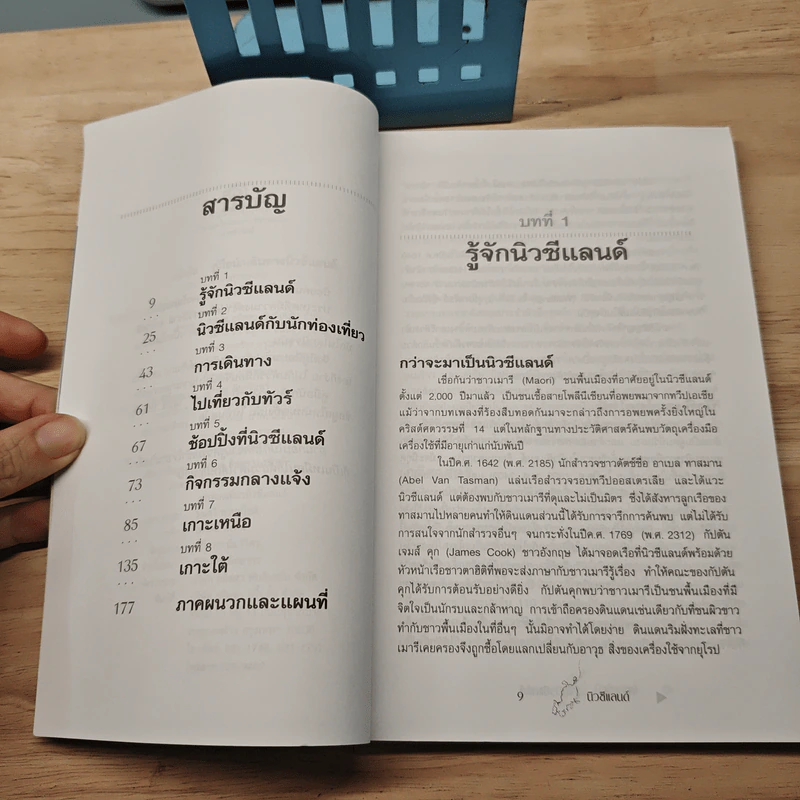 สารบัญ
บทที่ 1
9 รู้จักนิวซีแลนด์
บทที่ 2
25 นิวซีแลนด์กับนักท่องเที่ยว
บทที่ 3
43 การเดินทาง
บทที่ 4
61 ไปเที่ยวกับทัวร์
บทที่ 5
67 ช้อปปิ้งที่นิวซีแลนด์
บทที่ 6
73 กิจกรรมกลางแจ้ง
บทที่ 7
85 เกาะเหนือ
บทที่ 8
135 เกาะใต้
177 ภาคผนวกและแผนที่
บทที่ 1
รู้จักนิวซีแลนด์
กว่าจะมาเป็นนิวซีแลนด์
เชื่อกันว่าชาวเมารี (Maori) ชนพื้นเมืองที่อาศัยอยู่ในนิวซีแลนด์
ตั้งแต่ 2,000 ปีมาแล้ว เป็นชนเชื้อสายโพลีนีเซียนที่อพยพมาจากทวีปเอเชีย
แม้ว่าจากบทเพลงที่ร้องสืบทอดกันมาจะกล่าวถึงการอพยพครั้งยิ่งใหญ่ใน
คริสต์ศตวรรษที่ 14 แต่ในหลักฐานทางประวัติศาสตร์ค้นพบวัตถุเครื่องมือ
เครื่องใช้ที่มีอายุเก่าแก่นับพันปี
ในปีค.ศ. 1642 (พ.ศ. 2185) นักสำรวจชาวดัตช์ชื่อ อาเบล ทาสมาน
(Abel Van Tasman) แล่นเรือสำรวจรอบทวีปออสเตรเลีย และได้แวะ
นิวซีแลนด์ แต่ต้องพบกับชาวเมารีที่ดุและไม่เป็นมิตร ซึ่งได้สังหารลูกเรือของ
ทาสมานไปหลายคนทำให้ดินแดนส่วนนี้ได้รับการจารึกการค้นพบ แต่ไม่ได้รับ
การสนใจจากนักสำรวจอื่นๆ จนกระทั่งในปีค.ศ. 1769 (พ.ศ. 2312) กัปตัน
เจมส์ คุก (James Cook) ชาวอังกฤษ ได้มาจอดเรือที่นิวซีแลนด์พร้อมด้วย
หัวหน้าเรือชาวตาฮิติที่พอจะส่งภาษากับชาวเมารีรู้เรื่อง ทำให้คณะของกัปตัน
คุกได้รับการต้อนรับอย่างดียิ่ง กัปตันคุกพบว่าชาวเมารีเป็นชนพื้นเมืองที่มี
จิตใจเป็นนักรบและกล้าหาญ การเข้าถือครองดินแดนเช่นเดียวกับที่ชนผิวขาว
ทำกับชาวพื้นเมืองในที่อื่นๆ นั้นมิอาจทำได้โดยง่าย ดินแดนริมฝั่งทะเลที่ชาว
เมารีเคยครองจึงถูกซื้อโดยแลกเปลี่ยนกับอาวุธ สิ่งของเครื่องใช้จากยุโรป
9 นิวซีแลนด์